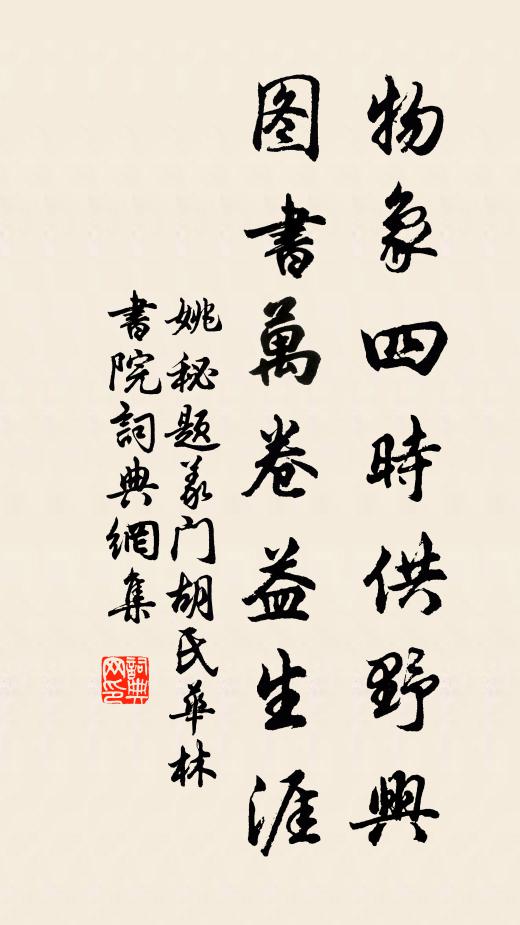 物象四時供野興
图書萬卷益生涯
姚秘題義门胡氏華林
書院詞典網集
詞典网印